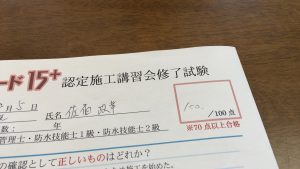 ード15+ 認定施工講習会修了試験
月5日 氏名 佐伯
150 /100点
数: 年
※70点以上合格
管理士・防水技能士1級・防水技能士2級
の確認として正しいものはどれか?